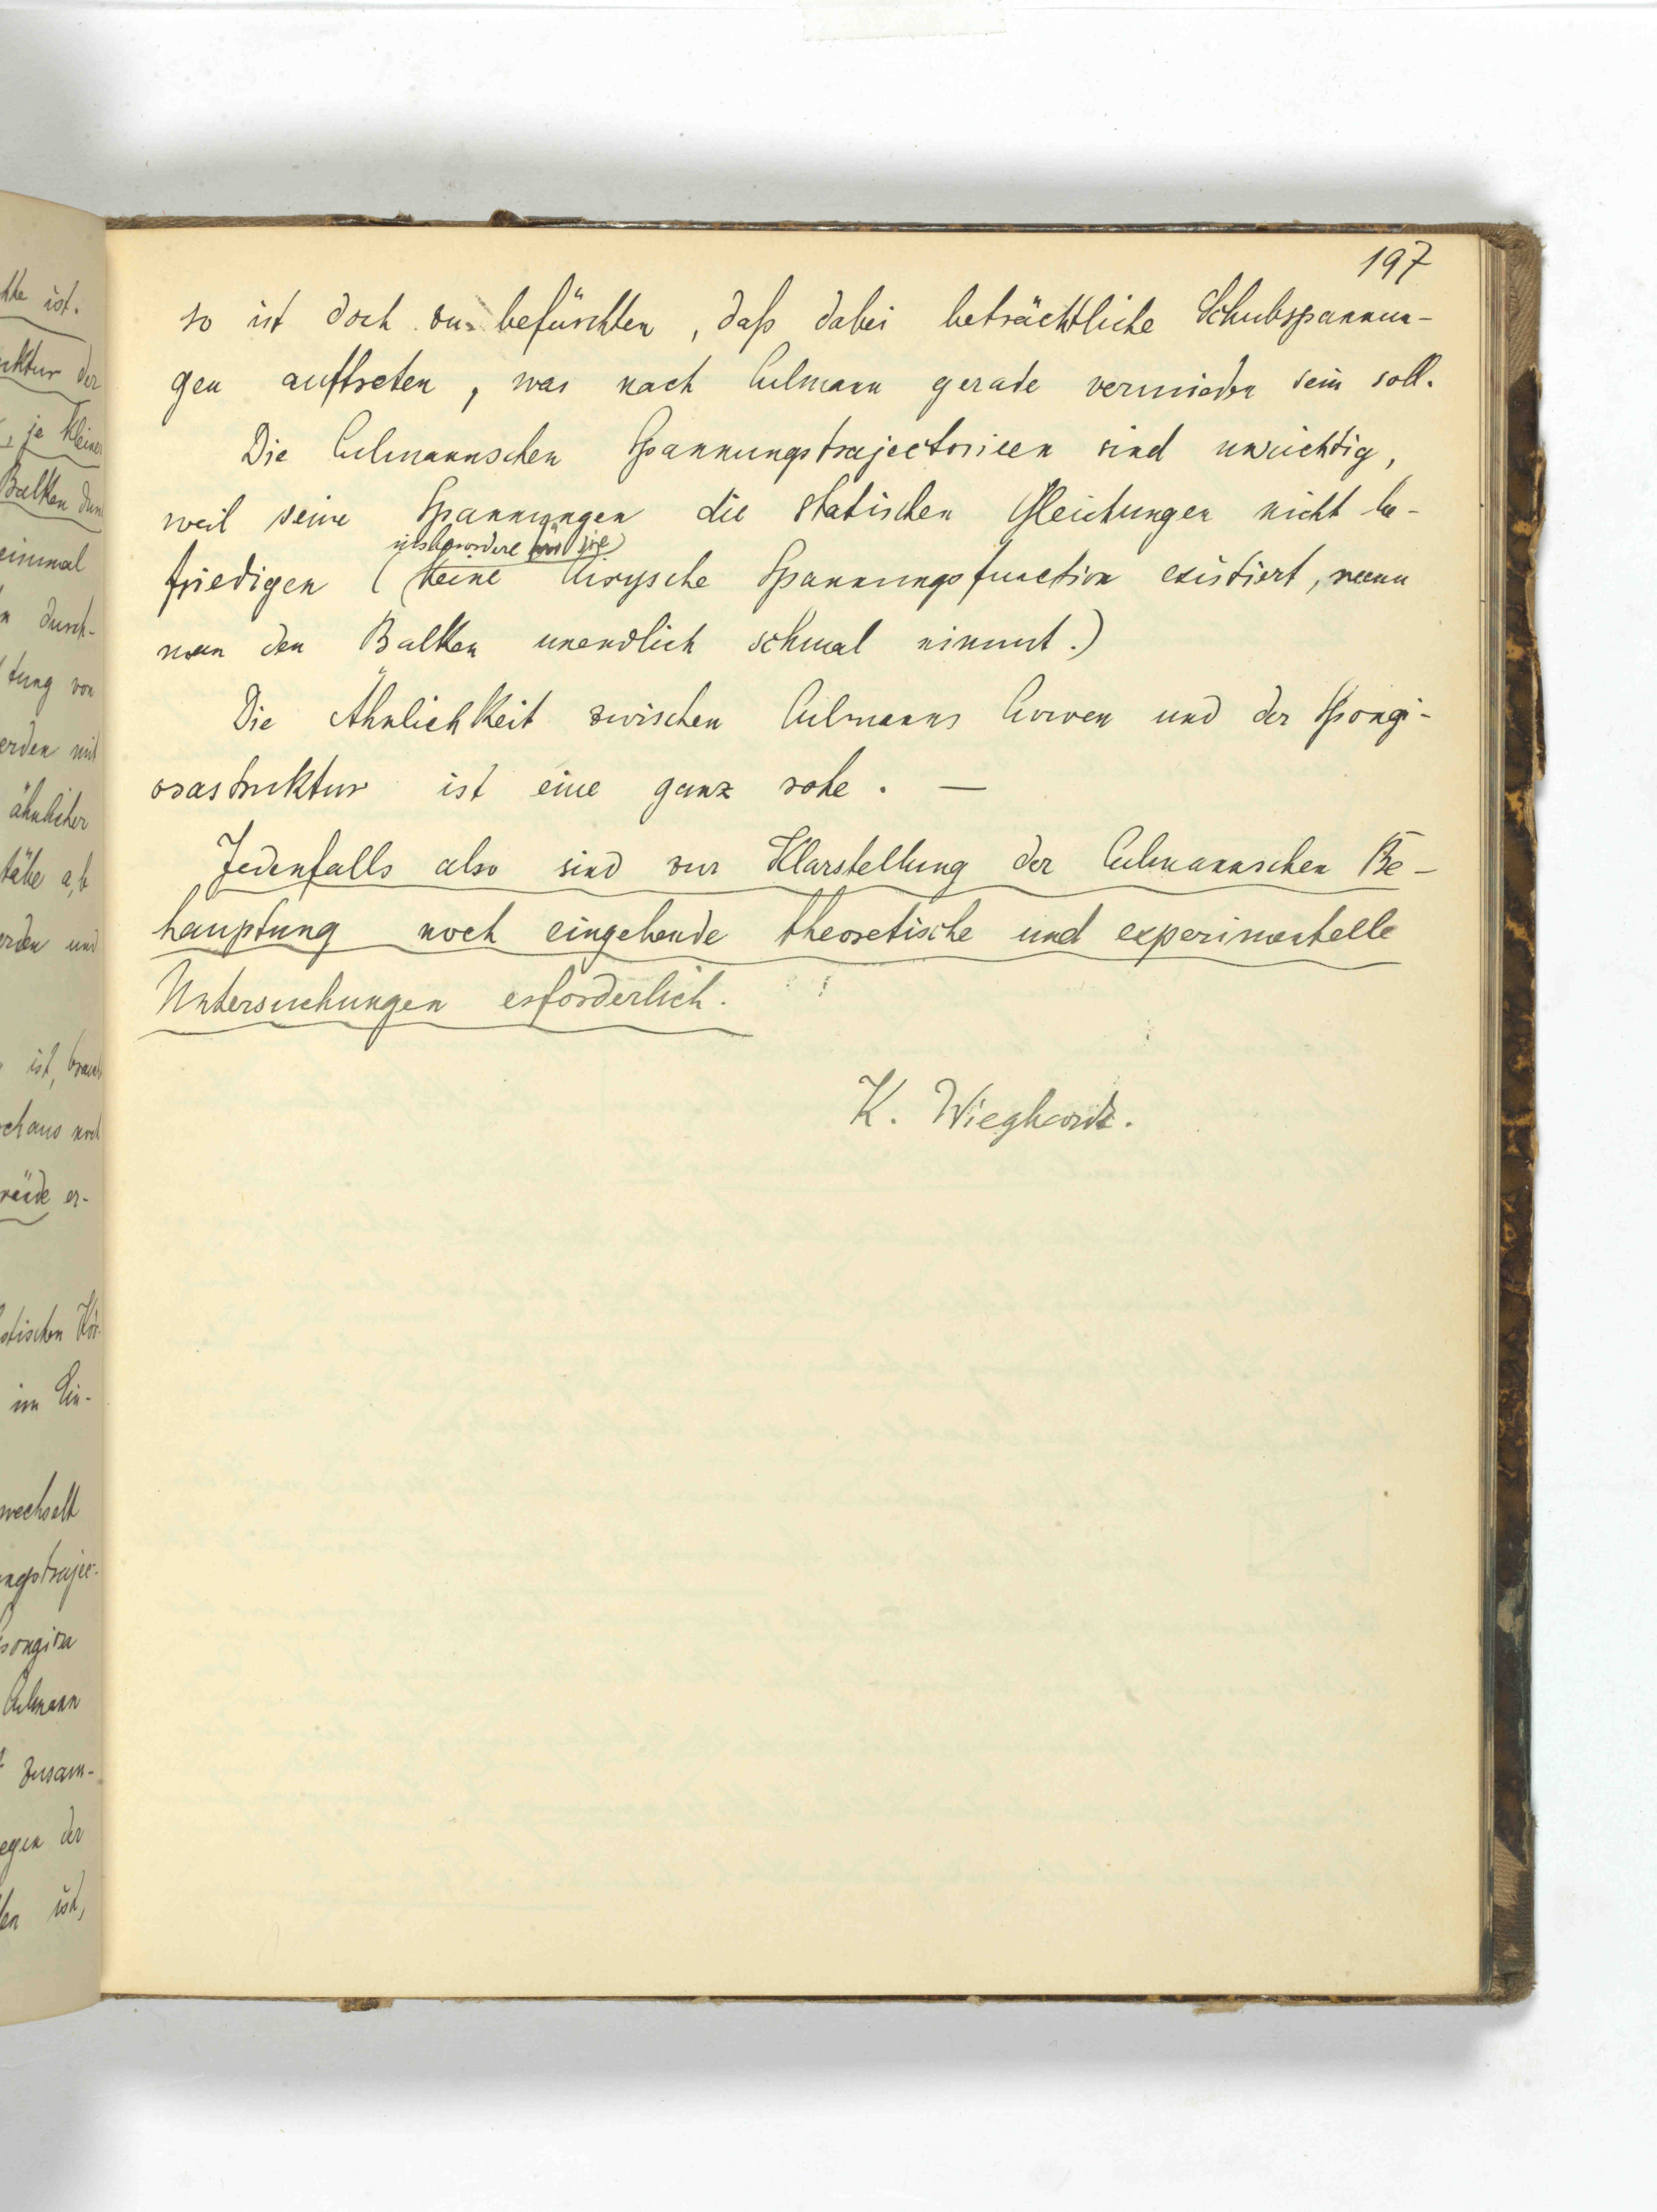 197
so ist doch zu befürchten, daß dabei beträchtliche Schubspannun-
gen auftreten, was nach Culmann gerade vermieden sein soll.
Die Culmannschen Spannungstrajectorieen sind unrichtig,
weil seine Spannungen die statischen Gleichungen nicht be-
insbesondere für sie
friedigen (keine Airysche Spannungsfunction existiert, wenn
man den Balken unendlich schmal nimmt.)
Die Ähnlichkeit zwischen Culmanns Curven und der Spongi-
osastruktur ist eine ganz rohe. —
Jedenfalls also sind zur Klarstellung der Culmannschen Be-
hauptung noch eingehende theoretische und experimentelle
Untersuchungen erforderlich.
K. Wieghardt.
ist.
uktur der
, je kleiner
Balken
einmal
durch-
tung von
erden mit
ähnlicher
täbe a, b
erden und
ist,
er-
stischen Kör-
im Ein-
wechselt
ngstrajec-
pongiosa
Culmann
zusam-
egen der
en ist,